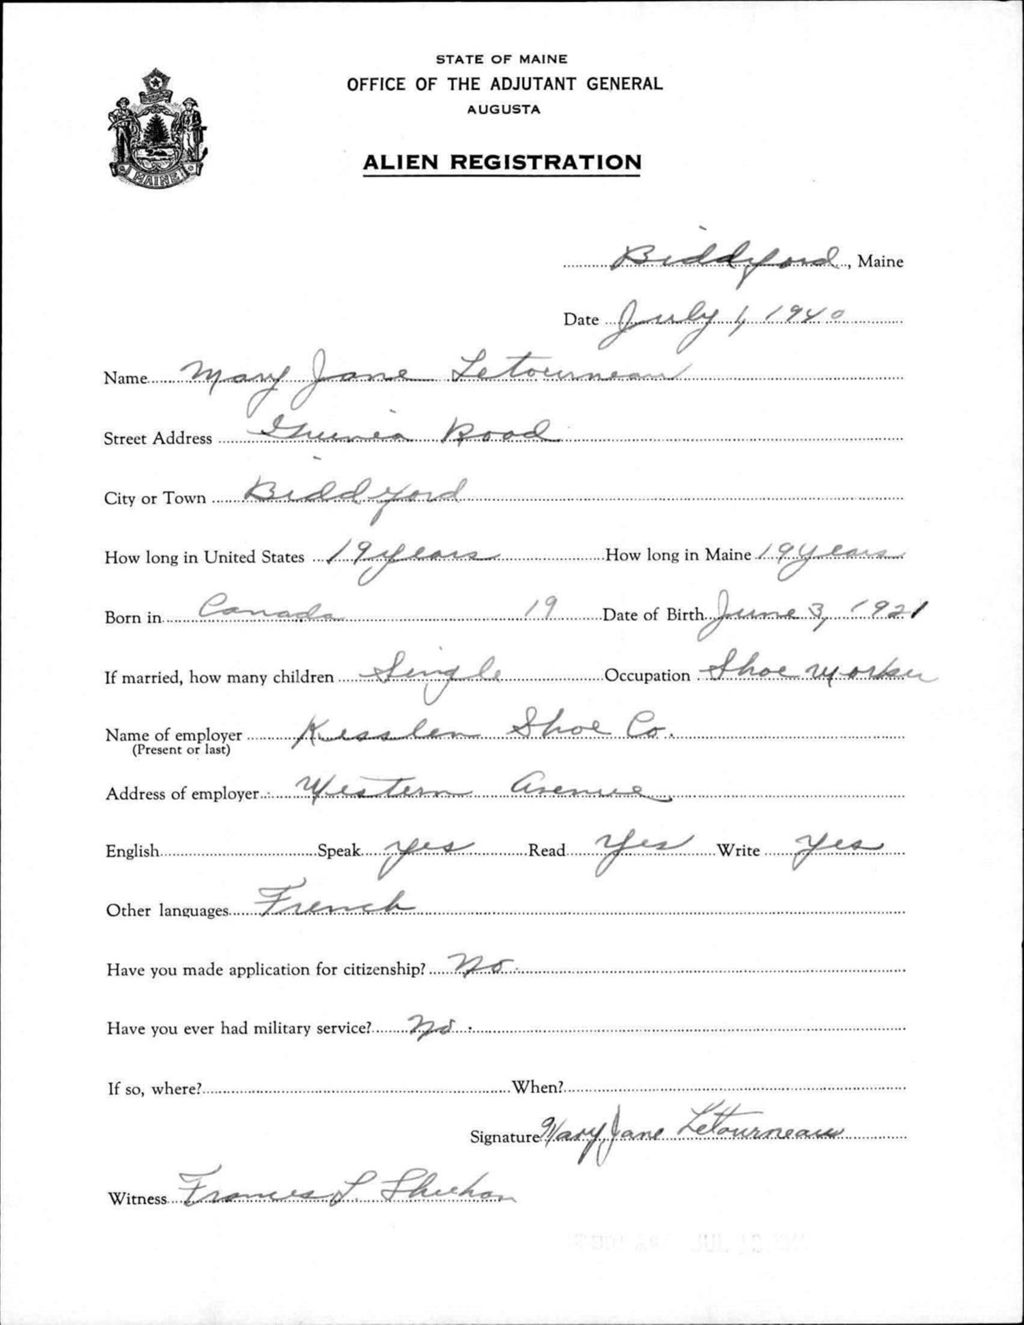 STATE OF MAINE
OFFICE OF THE ADJUTANT GENERAL
AUGUSTA
MAINE
ALIEN REGISTRATION
Biddeford, Maine
Date July 1, 1940
Name Mary Jane Letourneau
Street Address Guinea Road
City or Town Biddeford
How long in United States 19 years How long in Maine 19 years
Born in Canada 19 Date of Birth June 3, 1921
If married, how many children Single Occupation Shoe worker
Name of employer Kesslen Shoe Co.
(Present or last)
Address of employer Western Avenue
English Speak yes Read Yes Write Yes
Other languages French
Have you made application for citizenship? No
Have you ever had military service? No
If so, where? When?
Signature Mary Jane Letourneau
Witness Frances L Sheehan
JUL